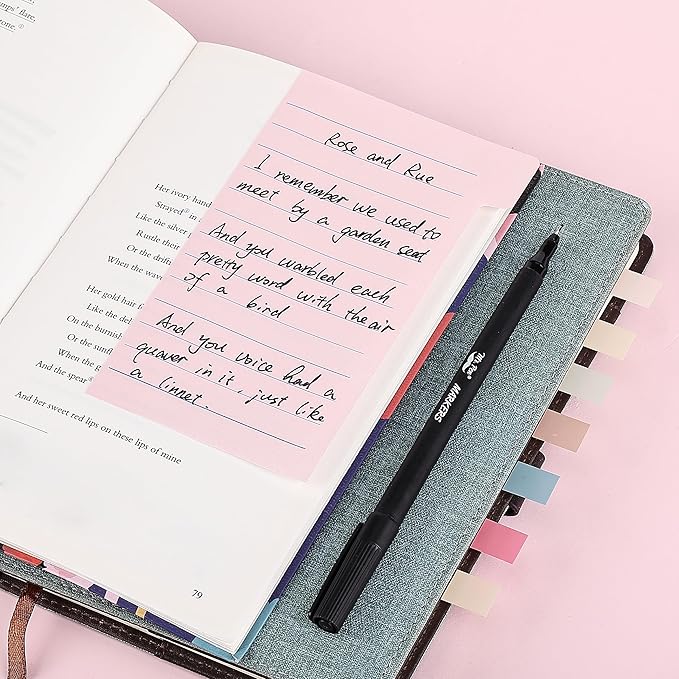 mps' flare,
one.②
Her ivory hand
Strayed② in
Like the silver
Rustle their
Or the drift
When the wave
Her gold hair
Like the del
On the burnish
Or the sunf
When the g
And the spear②
And her sweet red lips on these lips of mine
79
Rose and Rue
I remember we used to
meet by a garden seat
And you warbled each
pretty word with the air
of a bird
And you voice had a
quaver in it, just like
a linnet.
Mr.Pen®
MARKERS